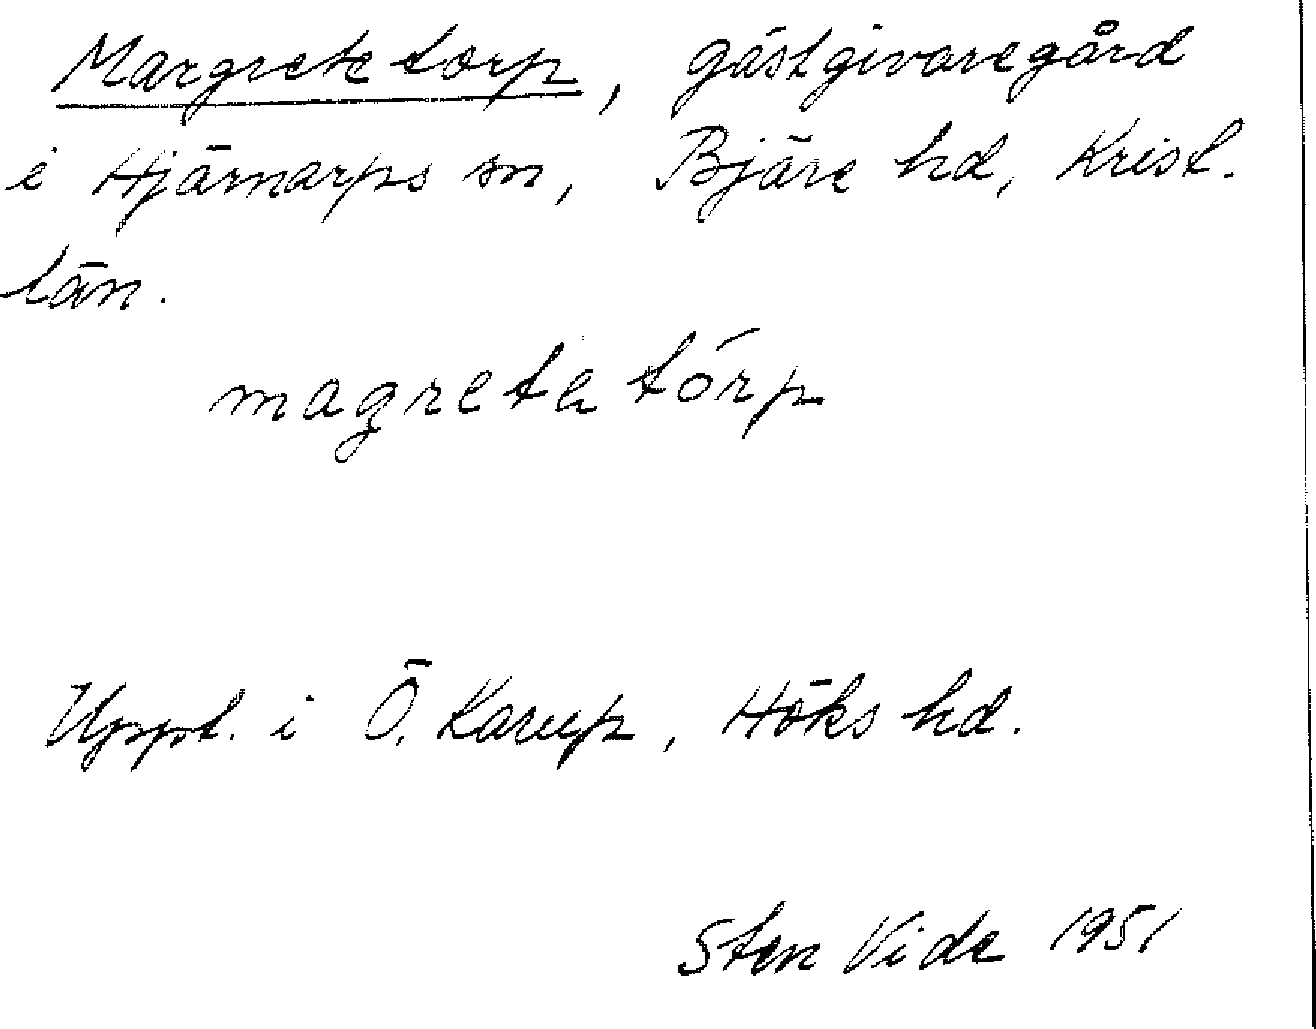 Margretetorp, gästgivaregård
i Hjärnarps sn, Bjäre hd, Krist.
län.
magretetórp
Uppt. i Ö. Karup, Höks hd.
Sten Vide 1951